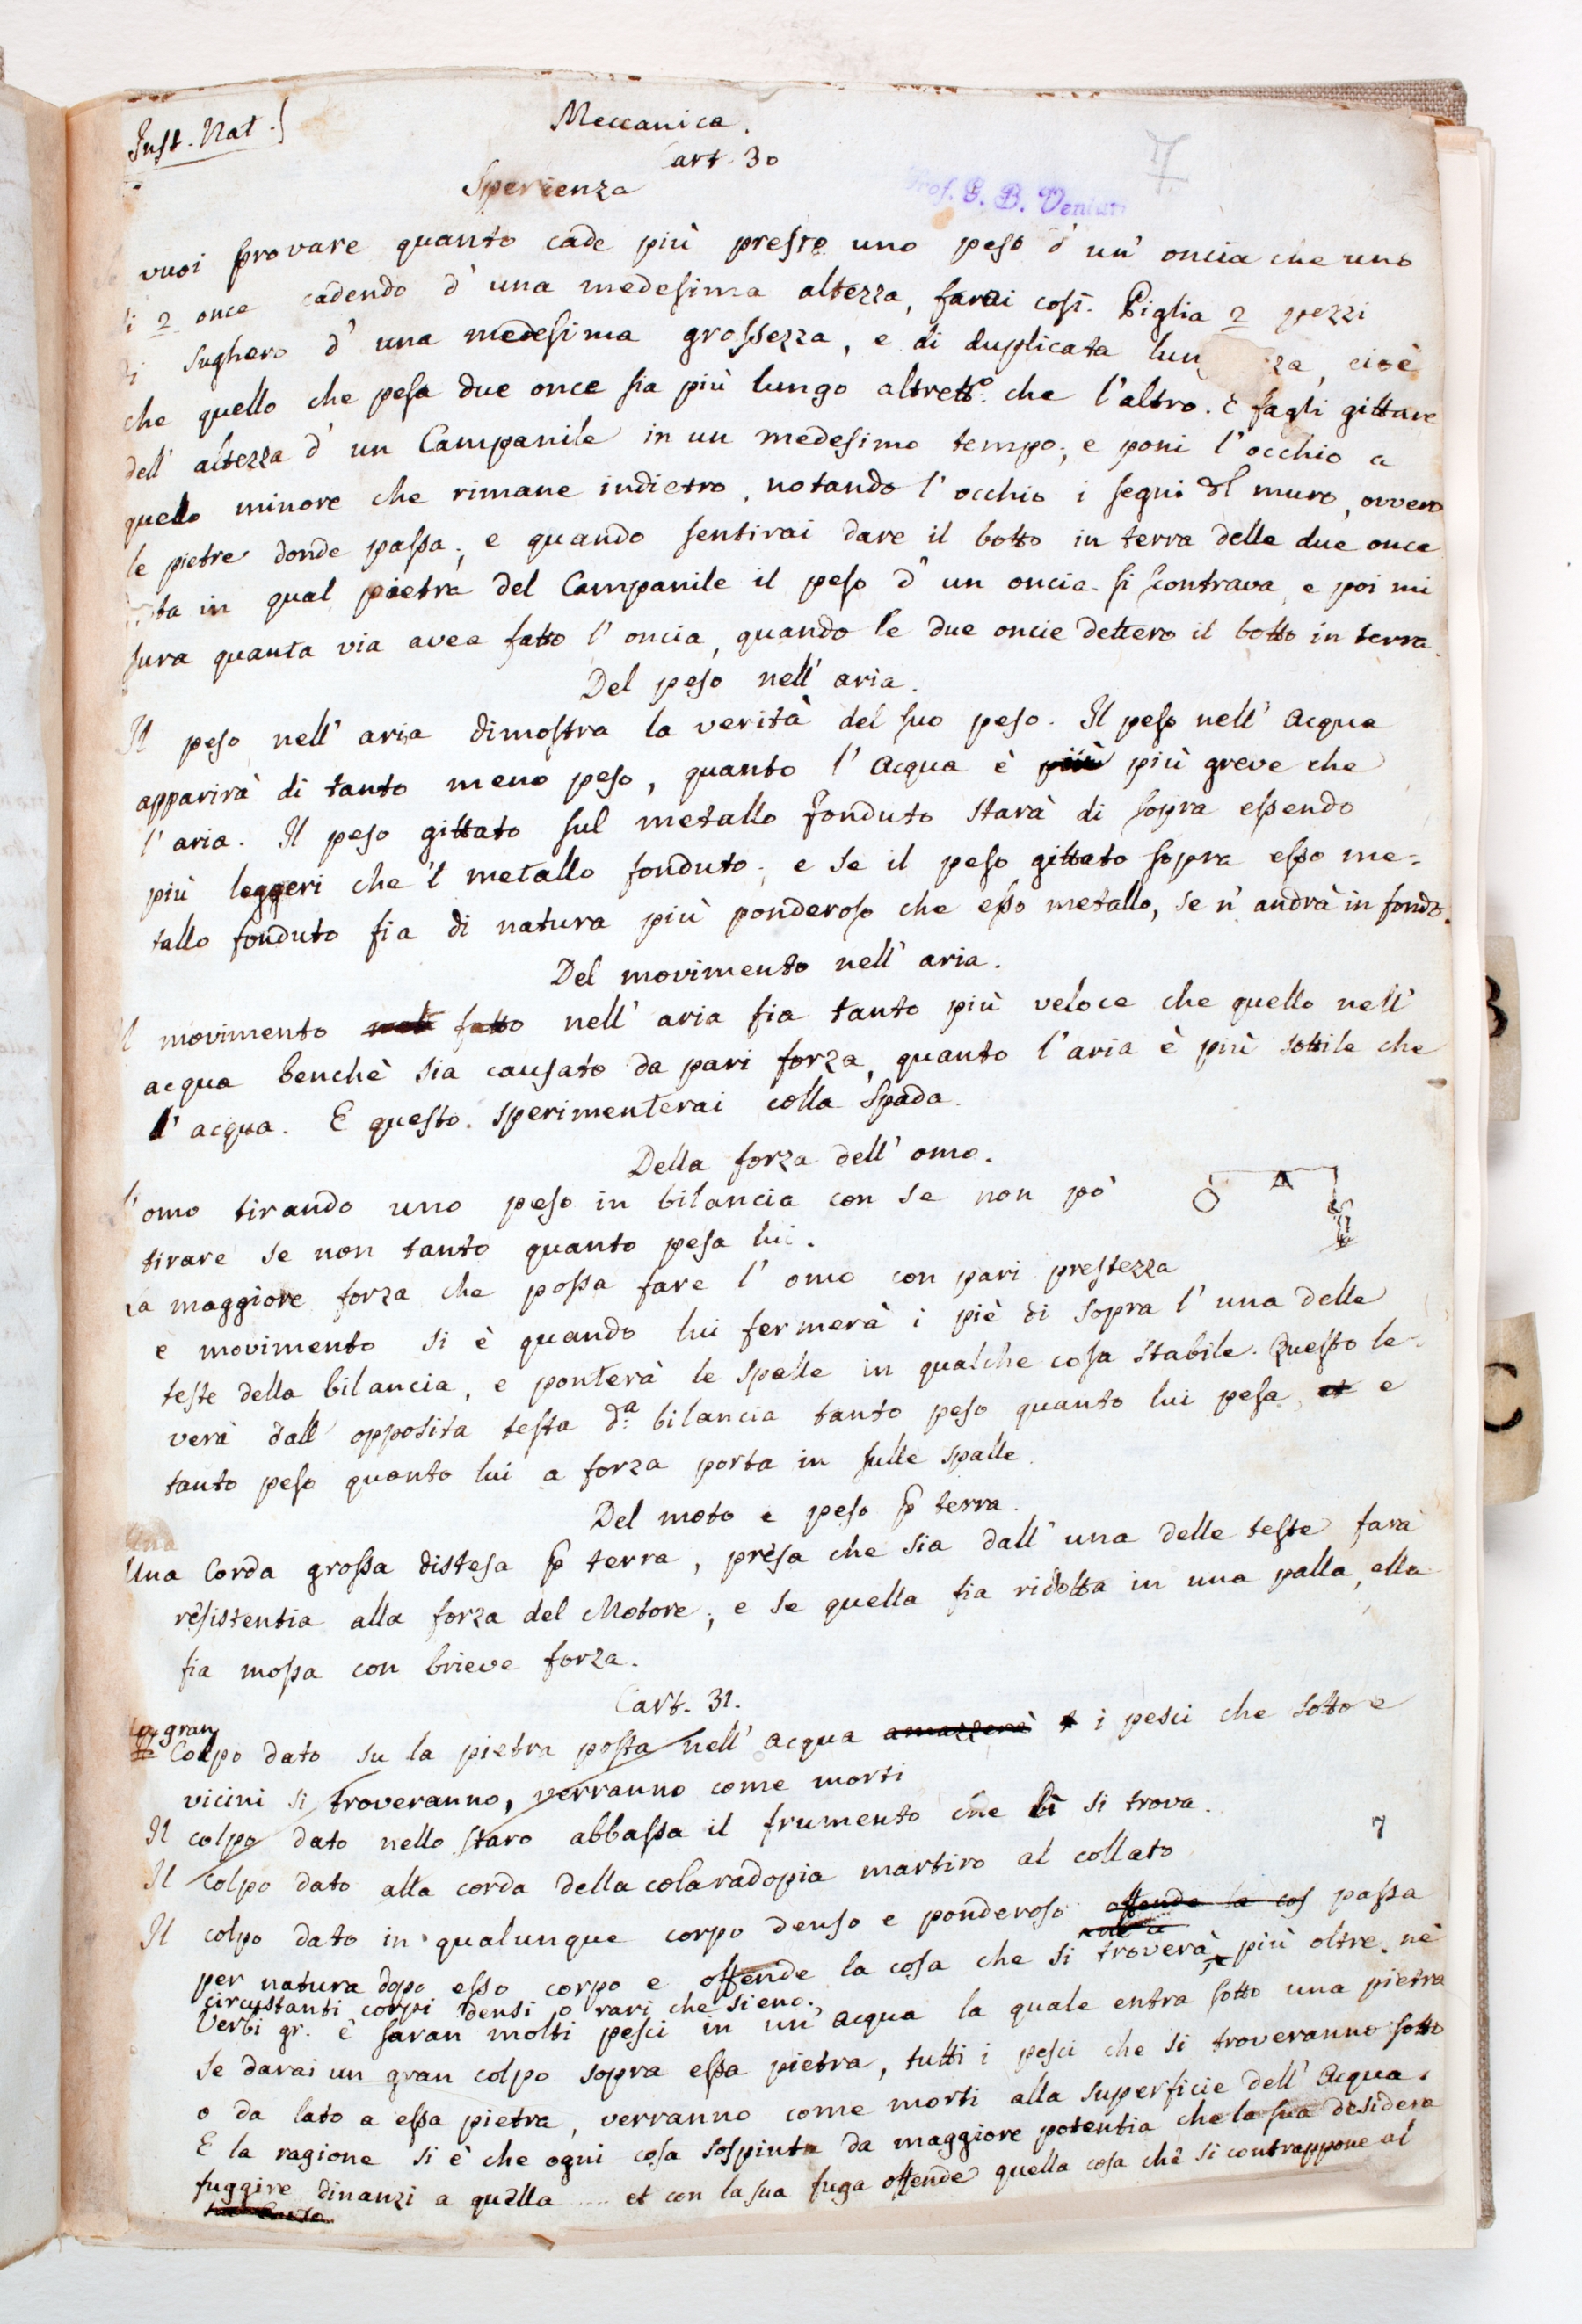 Inst. Nat.
Meccanica.
Cart. 30
7
Sperienza
Prof. G. B. Venturi
vuoi provare quanto cade più presto uno peso d' un' oncia che uno
di 2 once cadendo d' una medesima altezza, farai così. Piglia 2 pezzi
di sughero d' una medesima grossezza, e di duplicata lun za, cioè
che quello che pesa due once sia più lungo altrett.o che l'altro. E fagli gittare
dell' altezza d' un Campanile in un medesimo tempo; e poni l'occhio a
quello minore che rimane indietro, notando l'occhio i segni del muro, ovvero
le pietre donde passa; e quando sentirai dare il botto in terra delle due once
ta in qual pietra del Campanile il peso d' un oncia si scontrava, e poi mi
sura quanta via avea fatto l' oncia, quando le due oncie dettero il botto in terra.
Del peso nell' aria.
Il peso nell' aria dimostra la verità del suo peso. Il peso nell' Acqua
apparirà di tanto meno peso, quanto l' Acqua è più più greve che
l' aria. Il peso gittato sul metallo fonduto starà di sopra essendo
più leggeri che 'l metallo fonduto; e se il peso gittato sopra esso me=
tallo fonduto fia di natura più ponderoso che esso metallo, se n' andrà in fondo.
Del movimento nell' aria.
Il movimento fatto nell' aria fia tanto più veloce che quello nell'
acqua benchè sia causato da pari forza, quanto l'aria è più sottile che
l' acqua. E questo sperimenterai colla Spada.
Della forza dell' omo.
l' omo tirando uno peso in bilancia con se non pò
tirare se non tanto quanto pesa lui.
La maggiore forza che possa fare l' omo con pari prestezza
e movimento si è quando lui fermerà i piè di sopra l' una delle
teste della bilancia, e ponterà le spalle in qualche cosa stabile. Questo le=
verà dall' opposita testa d.a bilancia tanto peso quanto lui pesa, et e
tanto peso quanto lui a forza porta in sulle spalle.
Del moto e peso p terra.
Una
Una Corda grossa distesa p terra, presa che sia dall' una delle teste farà
resistentia alla forza del Motore; e se quella fia ridotta in una palla, ella
fia mossa con brieve forza.
Cart. 31.
gran
Colpo dato su la pietra posta nell' acqua amazzerà i pesci che sotto e
vicini si troveranno, verranno come morti
Il colpo dato nello staro abbassa il frumento che lì si trova.
7
Il colpo dato alla corda della colaradopia martiro al collato
Il colpo dato in qualunque corpo denso e ponderoso offende la cos passa
per natura dopo esso corpo e offende la cosa che si troverà più oltre, nè
circustanti corpi densi o rari che sieno.
Verbi gr. e' saran molti pesci in un' acqua la quale entra sotto una pietra
se darai un gran colpo sopra essa pietra, tutti i pesci che si troveranno sotto
o da lato a essa pietra, verranno come morti alla superficie dell' Acqua.
E la ragione si è che ogni cosa sospinta da maggiore potentia che la sua desidera
fuggire dinanzi a quella ..... et con la sua fuga offende quella cosa che si contrappone al
B
C